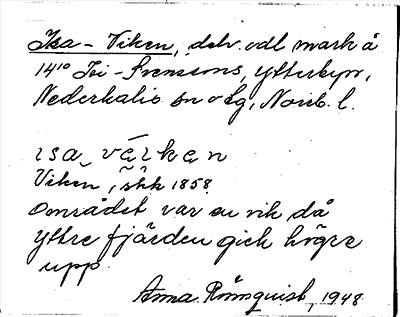 Isa-Viken, delv. odl mark å
14¹⁰ Isi-Svensons, Ytterbyn,
Nederkalix sn o lg, Norrb. l.
ısa vä́ıkan
Viken, skk 1858
Området var en vik då
yttre fjärden gick högre
upp
Anna Rönnquist, 1948